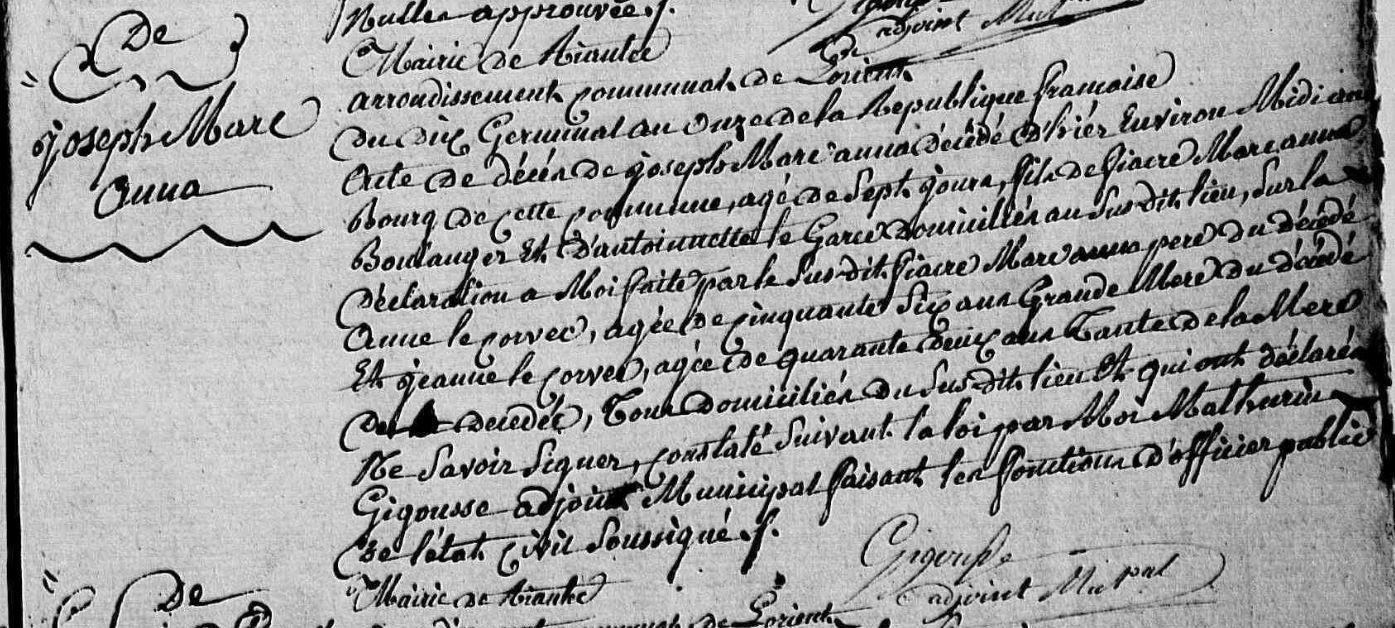 Nulle approuvée ./.
adjoint Mupal
De
Joseph Marc
anna
Mairie de Riantec
arrondissement communal de Lorient
Du dix Germinal an onze de la Republique francaise
Acte de décés de joseph Marc anna décédé d'hiér Environ Midi au
Bourg de cette commune, agé de Sept jours, fils de fiacre Marc anna
Boulanger Et d'antoinette le Garec Domiciliés au Susdit lieu, Sur la
Déclaration a Moi faite par le Susdit fiacre Marc anna pere du décédé
Anne le corvec, agée de cinquante Six ans Grande Mere du décédé
Et jeanne le corvec, agée de quarante deux ans Tante de la Mere
de decedée, Tous Domiciliés du Susdit lieu Et qui ont déclarés
Ne Savoir Signer, constaté Suivant la loi par Moi Mathurin
Gigousse adjoint Municipal faisant les fonctions d'officier public
de l'état civil Soussigné ./.
Gigousse
adjoint Mupal
De
Mairie de Riantec
communal de Lorient